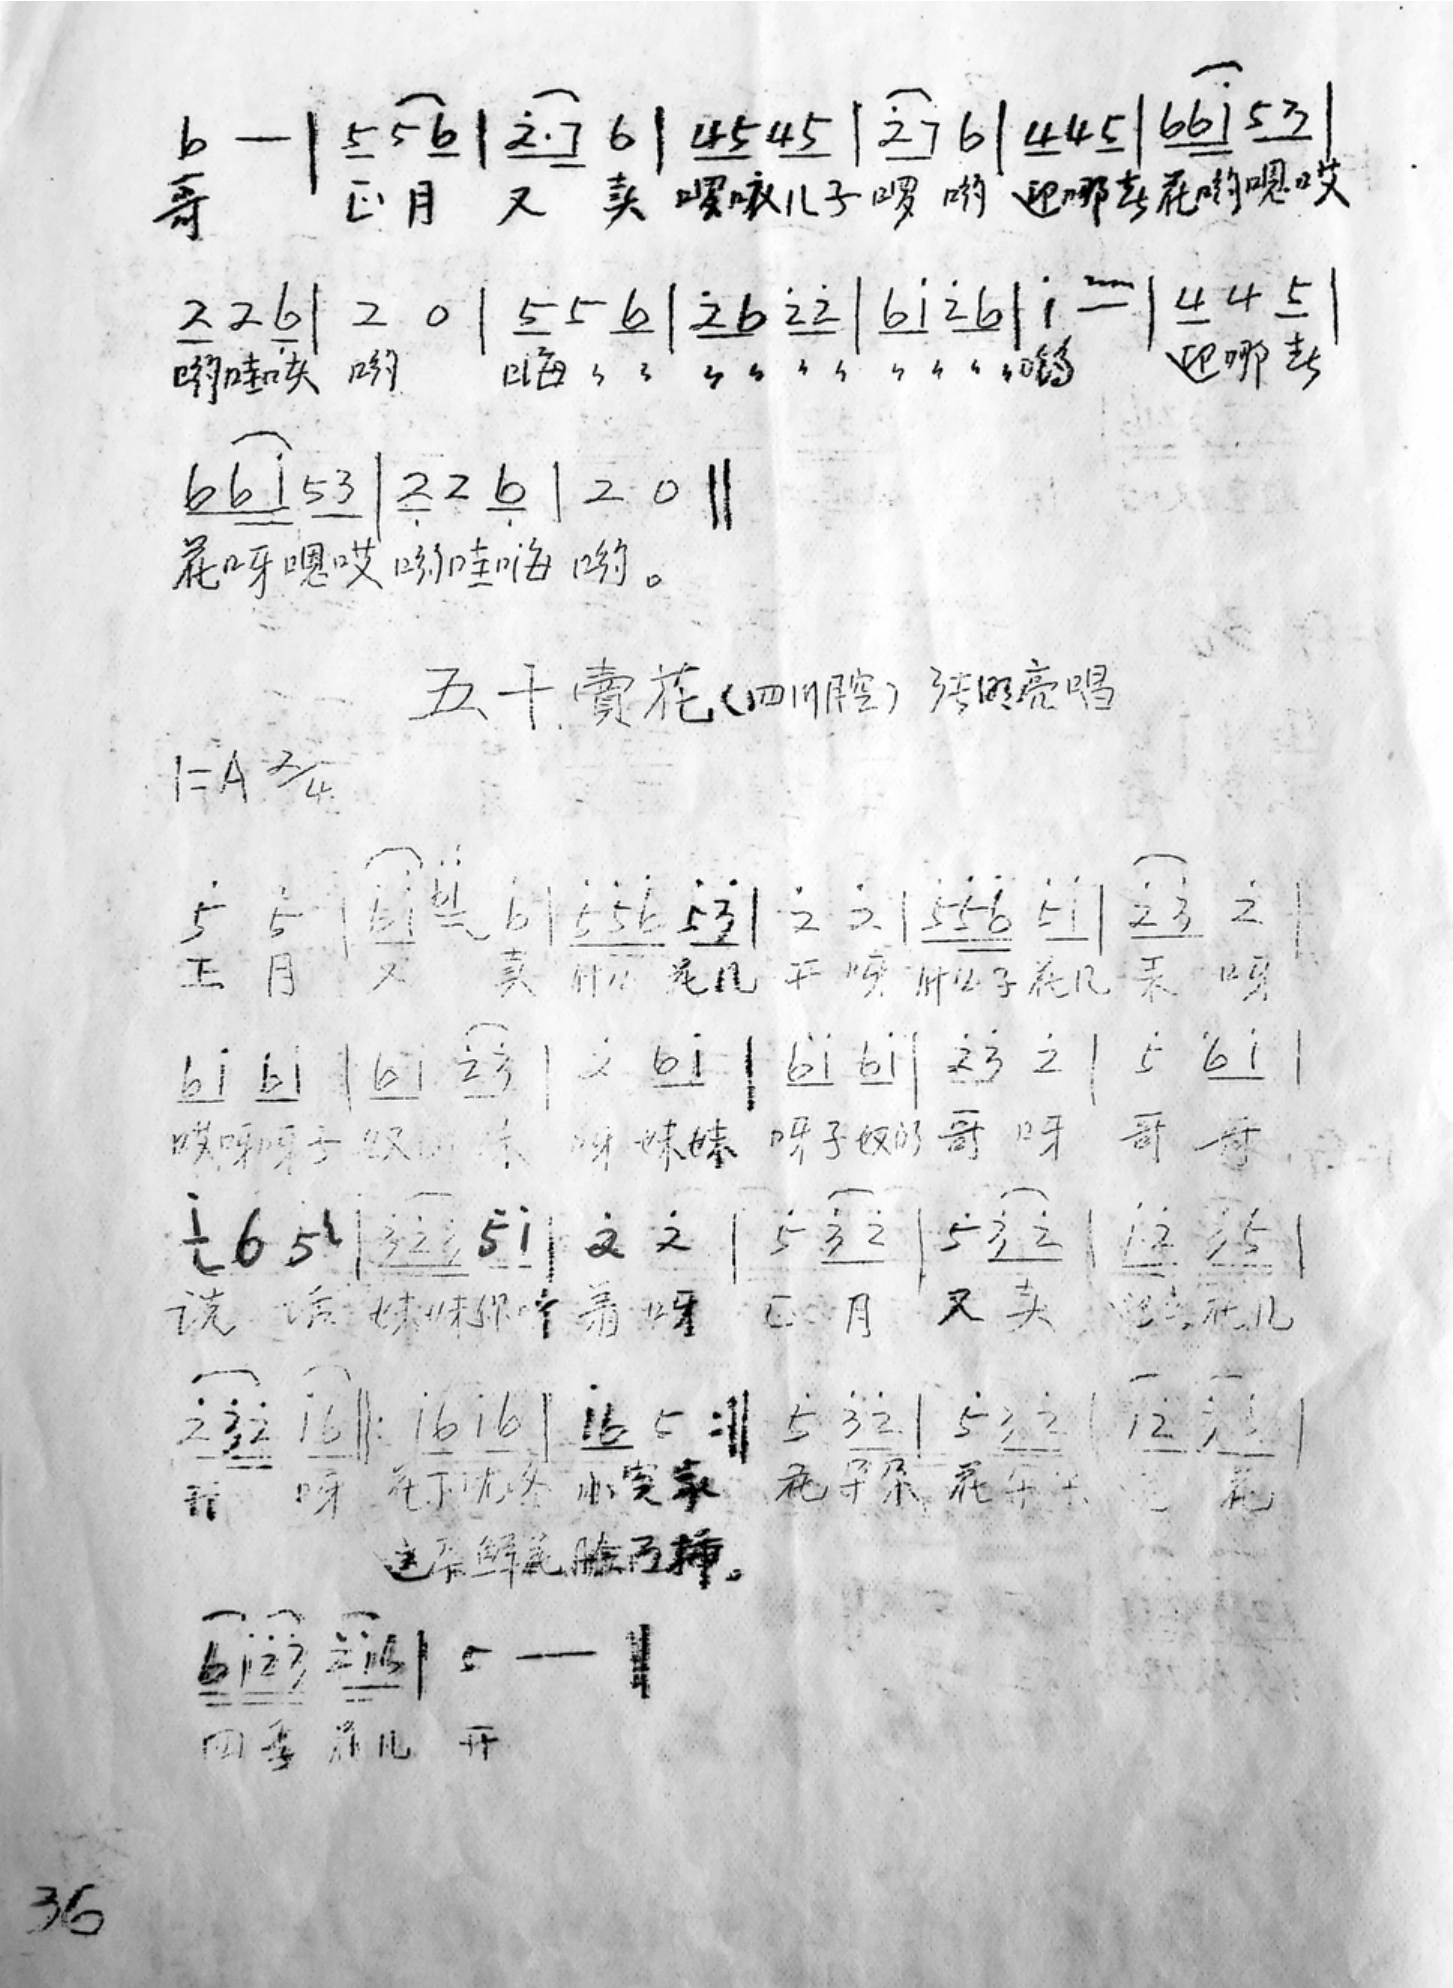 6 — | 5 5 6 | 2̇·7 6 | 45 45 | 2̇7 6 | 4 4 5 | 6 6i̇ 53 |
哥 正月 又 卖 啰嗷儿子啰 哟 迎哪春花哟嗯哎
2 2 6̣ | 2 0 | 5 5 6 | 2̇6 2̇2̇ | 6i̇ 2̇6 | i̇ — | 4 4 5 |
哟哇咳 哟 嗨 迎哪春
6 6i̇ 53 | 2 2 6̣ | 2 0 ‖
花呀嗯哎 哟哇嗨 哟。
五十.賣花(四川腔) 张明亮唱
1=A 2/4
5̇ 5̇ | 6i̇ 6 | 5̇5̇6̇ 5̇3̇ | 2̇ 2̇ | 5̇5̇6̇ 5̇i̇ | 2̇3̇ 2̇ |
正 月 又 卖 什么 花儿 开 呀 什么子花儿 来 呀
6i̇ 6i̇ | 6i̇ 2̇3̇ | 2̇ 6i̇ | 6i̇ 6i̇ | 2̇3̇ 2̇ | 5 6i̇ |
哎呀呀子 奴的 妹 呀 妹妹 呀子奴的 哥 呀 哥 哥
i̇ 6 5 | 3̇2̇3̇ 5̇i̇ | 2̇ 2̇ | 5̇ 3̇2̇ | 5̇ 3̇2̇ | i̇2̇ 3̇5̇ |
说 话 妹妹你听着 呀 正 月 又 卖 花儿
2̇3̇2̇ i̇6 ‖: i̇6 i̇6 | i̇6 5 :‖ 5̇ 3̇2̇ | 5̇ 3̇2̇ | i̇2̇
开 呀 花下 小冤家 花朵朵 花朵朵 花
这朵鲜花 種。
6i̇2̇3̇ 2̇i̇6 | 5 — ‖
四季 花儿 开
36